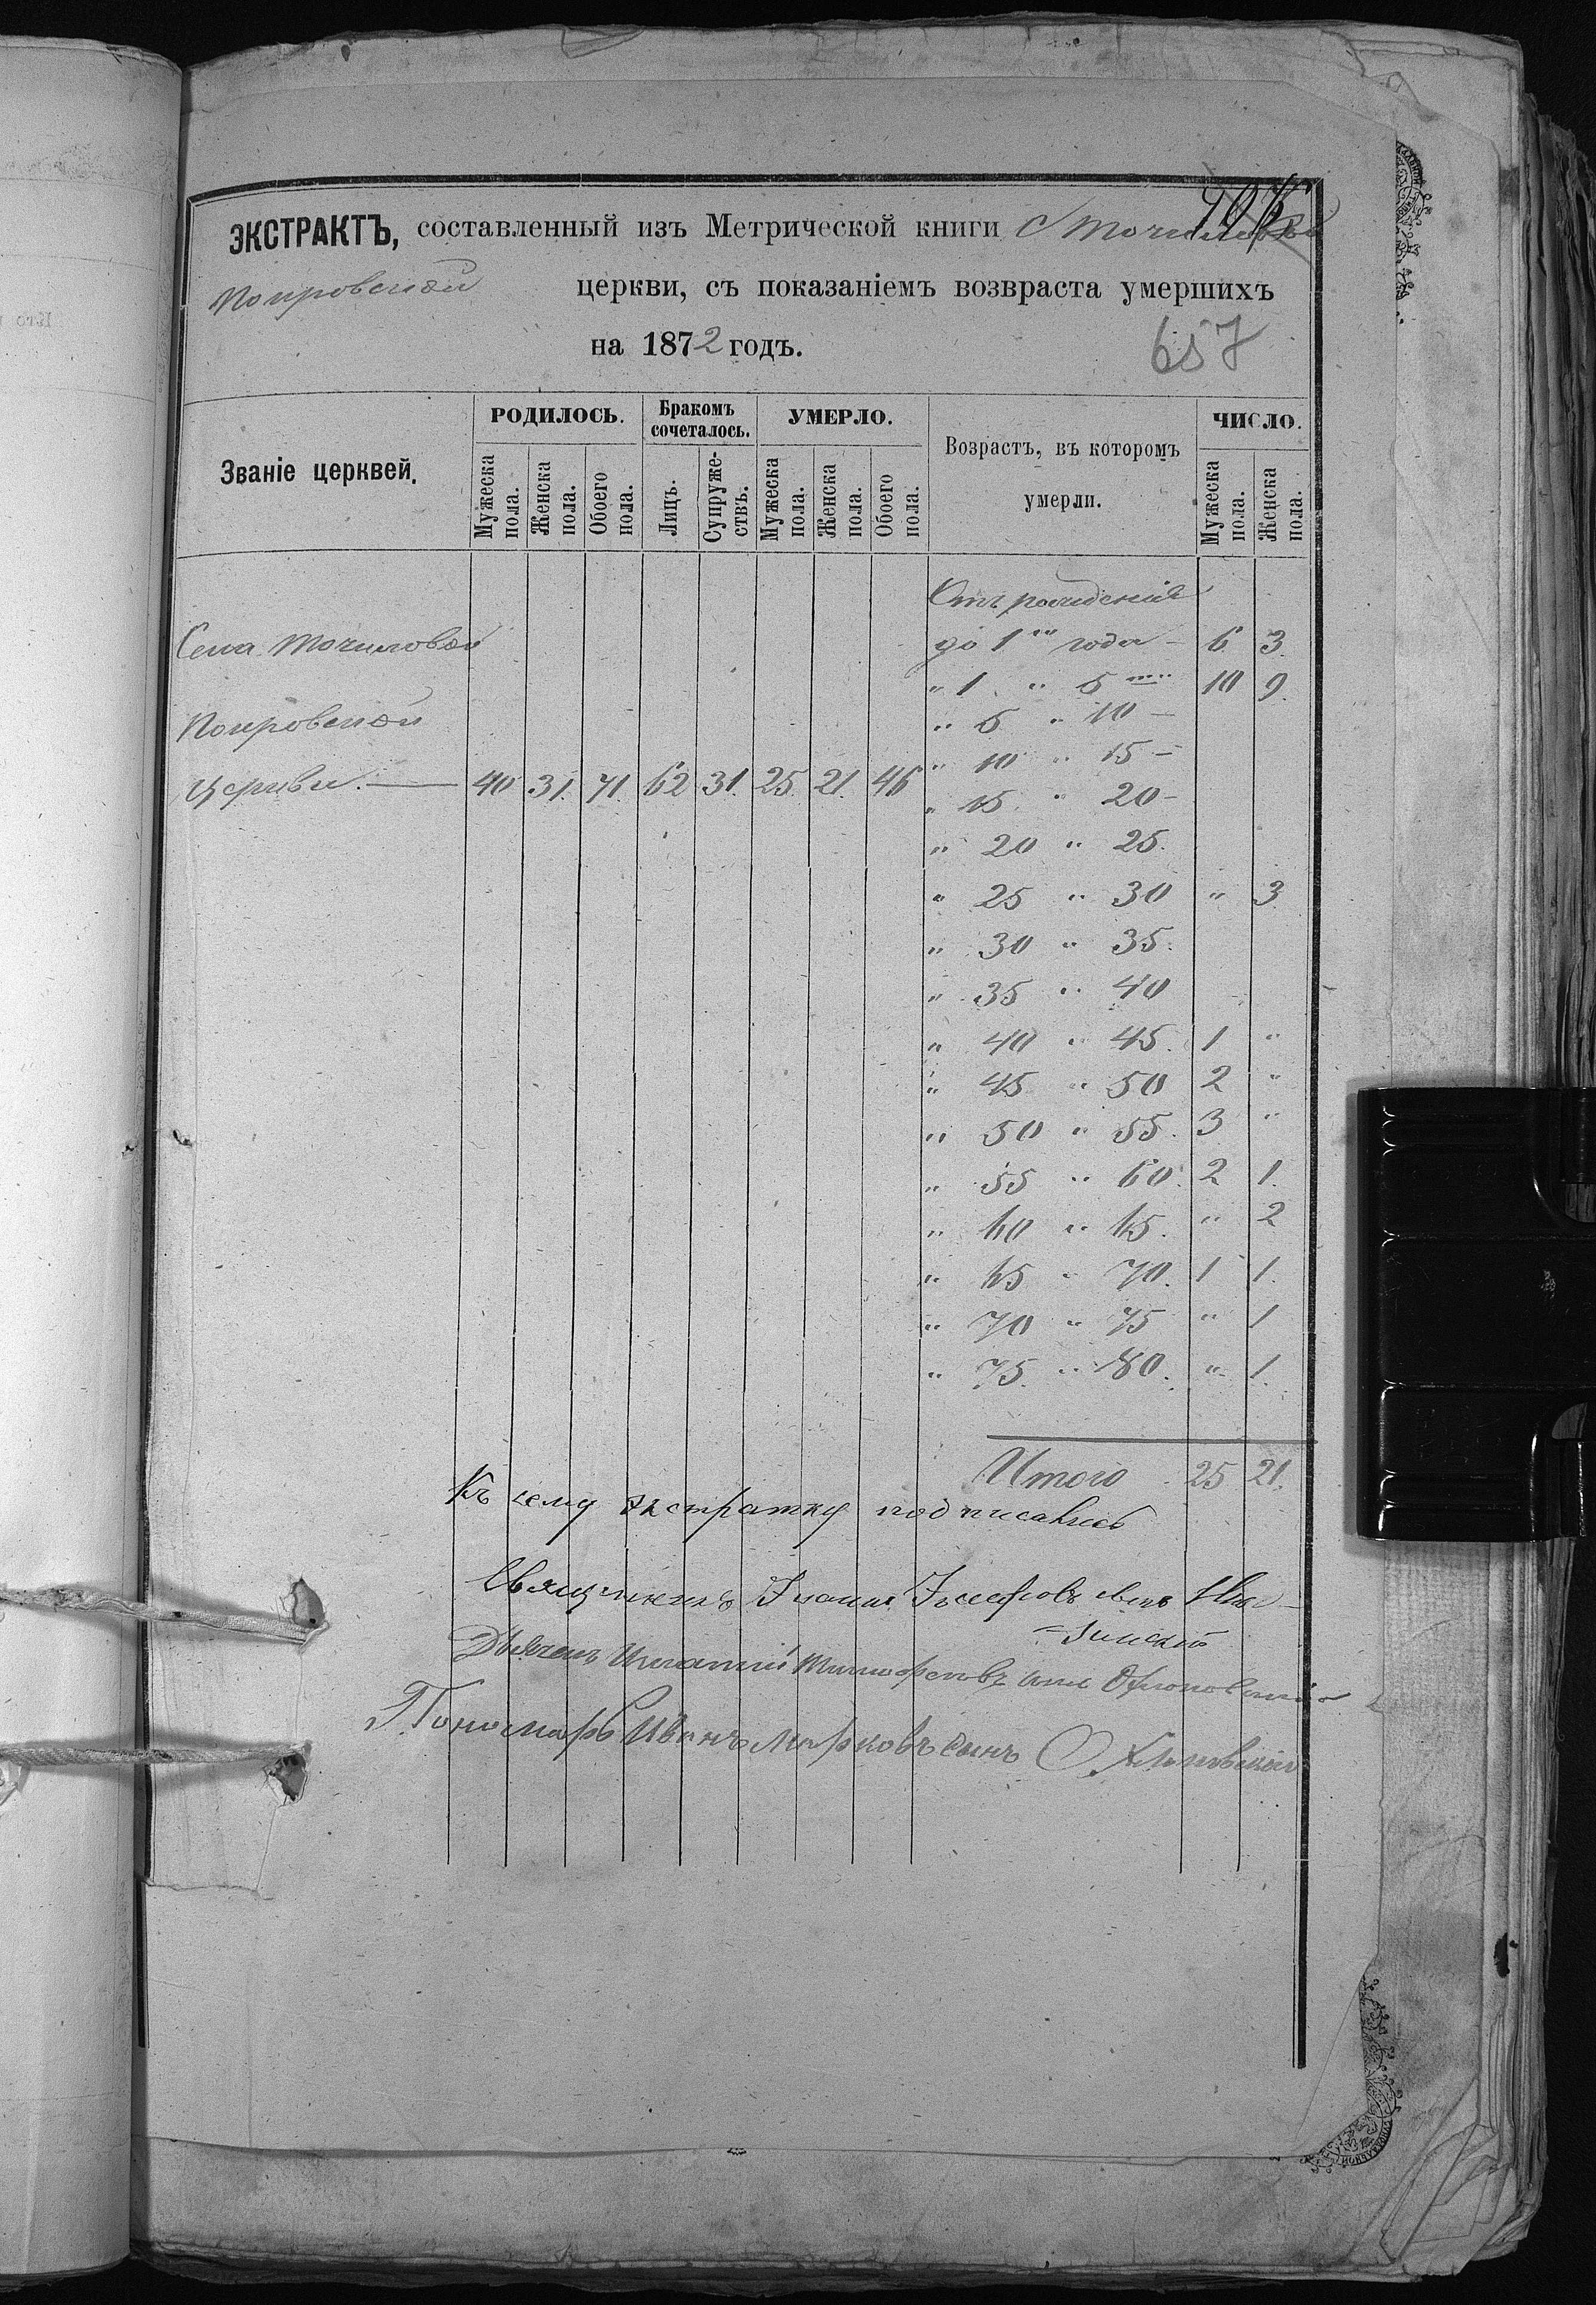 ЭКСТРАКТЪ, составленный изъ Метрической книги С Точиловой
Покровской церкви, съ показаніемъ возвраста умершихъ
на 1872 годъ.
657
Званіе церквей.
РОДИЛОСЬ.
Мужеска пола.
Женска пола.
Обоего пола.
Бракомъ сочеталось.
Лицъ.
Супружествъ.
УМЕРЛО.
Мужеска пола.
Женска пола.
Обоего пола.
Возрастъ, въ которомъ
умерли.
ЧИСЛО.
Мужеска пола.
Женска пола.
Села Точиловой
Покровской
Церкви. — 40 31. 71. 62 31. 25. 21. 46
Отъ рожденія
до 1го года - 6 3.
" 1 " 5 10 9.
" 5 " 10 -
" 10 " 15 -
" 15 " 20 -
" 20 " 25.
" 25 " 30 " 3
" 30 " 35.
" 35 " 40
" 40 " 45. 1 "
" 45 " 50 2 "
" 50 " 55. 3 "
" 55 " 60. 2 1.
" 60 " 65. " 2
" 65 " 70. 1 1.
" 70 " 75 " 1
" 75. " 80. " 1.
Итого 25 21.
Къ сему экстрактку подписались
Священникъ Іоаннъ
Дьячекъ Игнатій сынъ
Пономарь Иванъ Марковъ сынъ